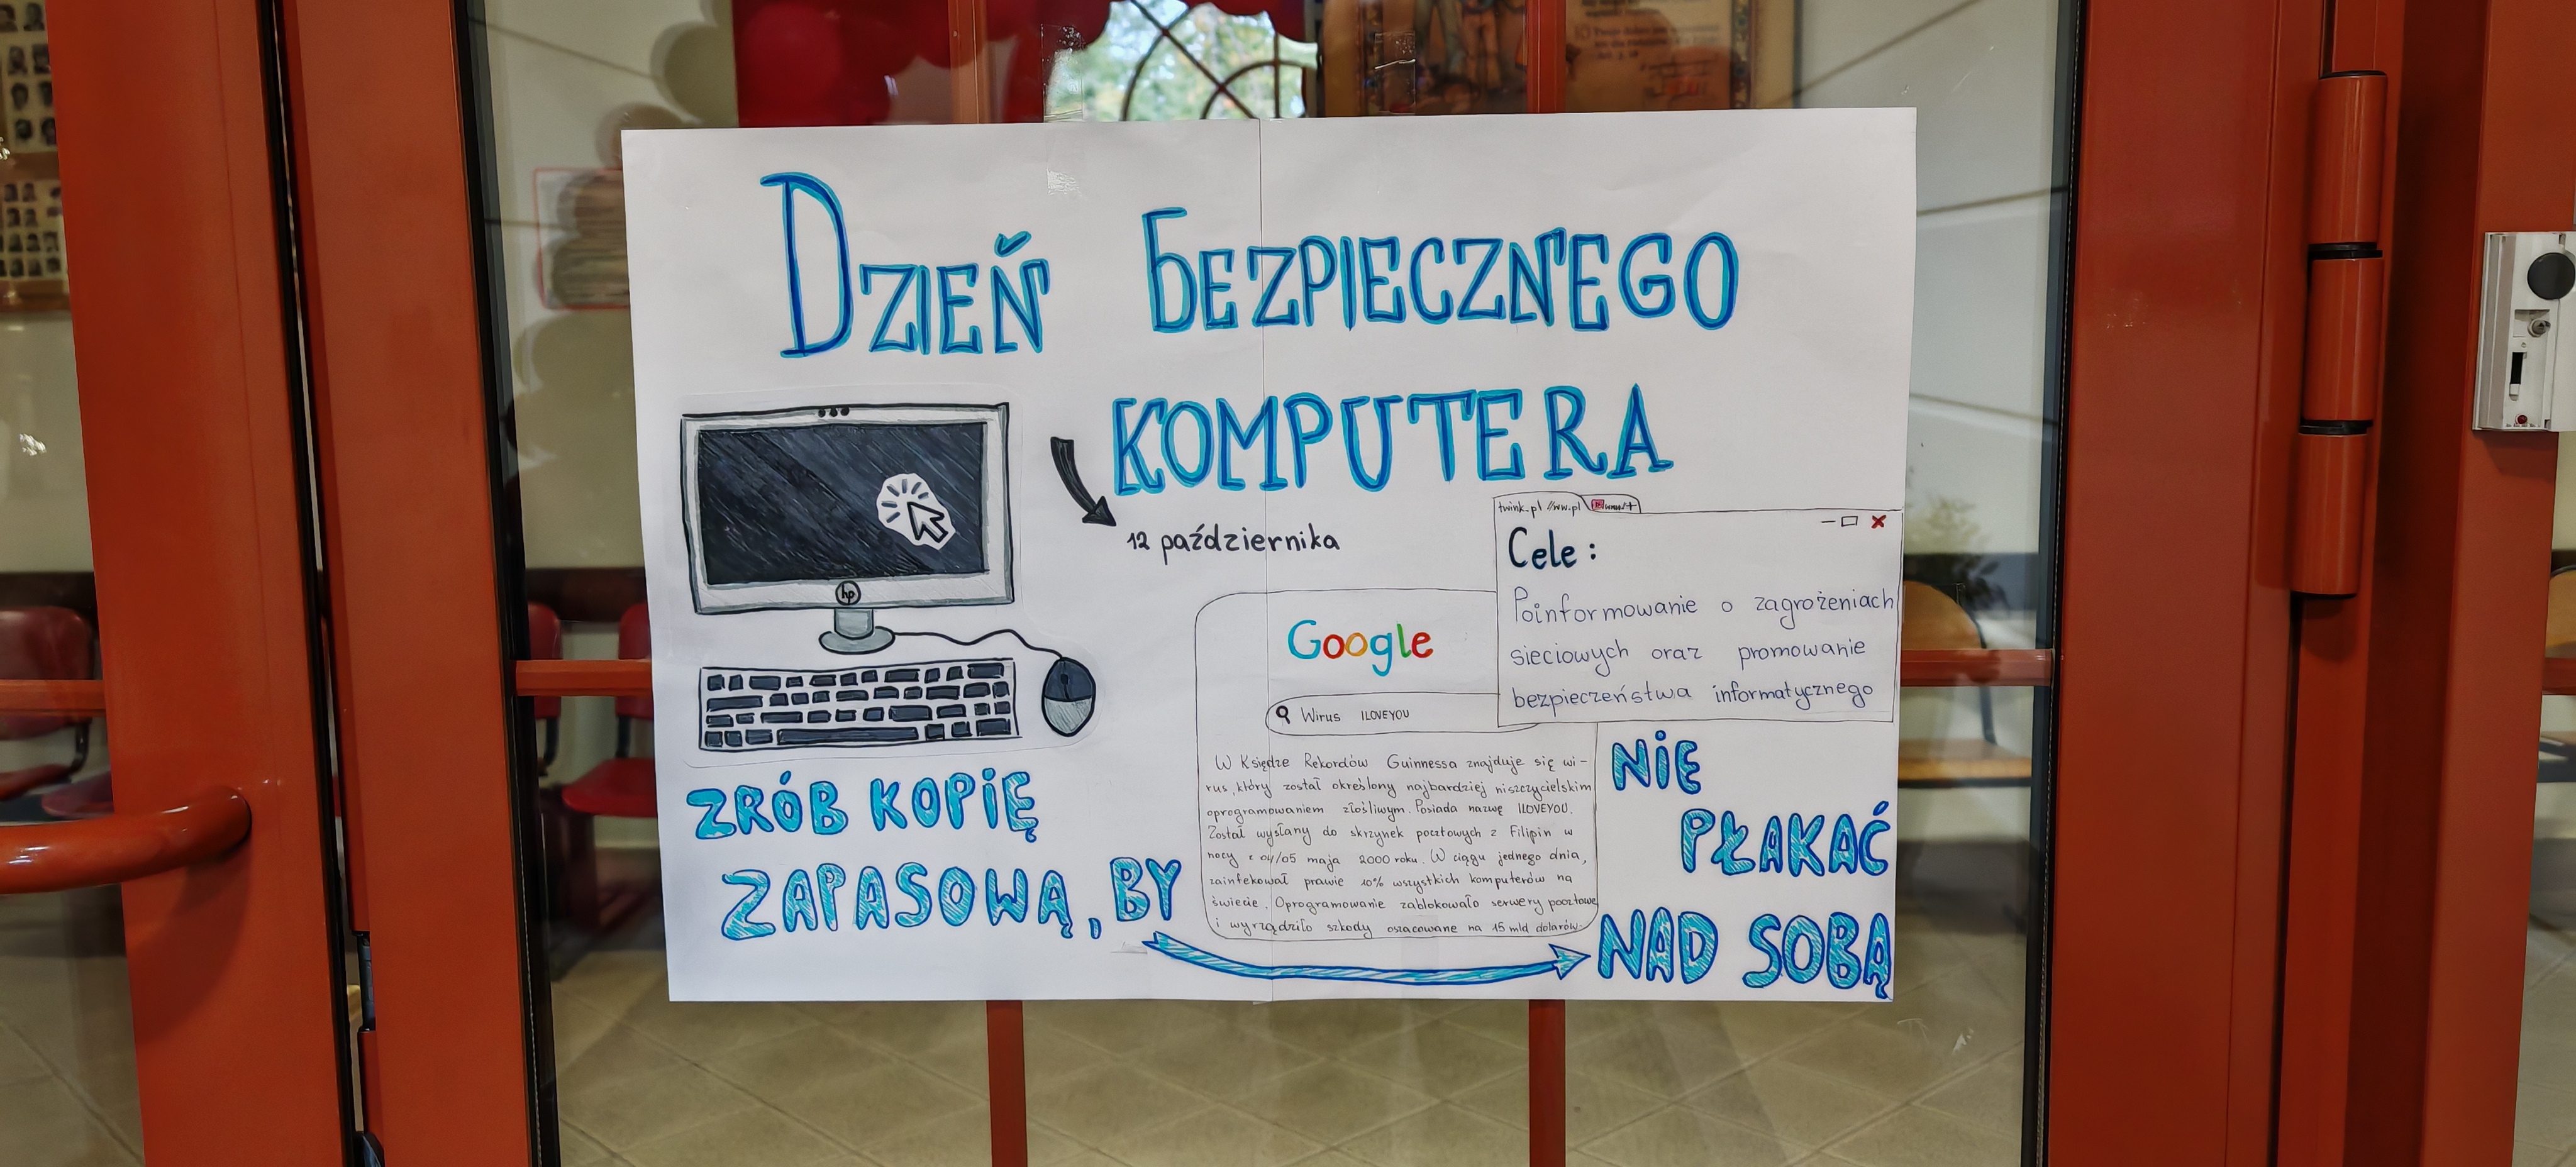 DZIEŃ BEZPIECZNEGO
KOMPUTERA
12 października
hp
twink.pl //ww.pl
Cele :
Poinformowanie o zagrożeniach
sieciowych oraz promowanie
bezpieczeństwa informatycznego
Google
Wirus ILOVEYOU
W Księdze Rekordów Guinnessa znajduje się wi-
rus, który został określony najbardziej niszczycielskim
oprogramowaniem złośliwym. Posiada nazwę ILOVEYOU.
Został wysłany do skrzynek pocztowych z Filipin w
nocy z 04/05 maja 2000 roku. W ciągu jednego dnia,
zainfekował prawie 10% wszystkich komputerów na
świecie. Oprogramowanie zablokowało serwery pocztowe
i wyrządziło szkody oszacowane na 15 mld dolarów.
ZRÓB KOPIĘ
ZAPASOWĄ, BY
NIE
PŁAKAĆ
NAD SOBĄ